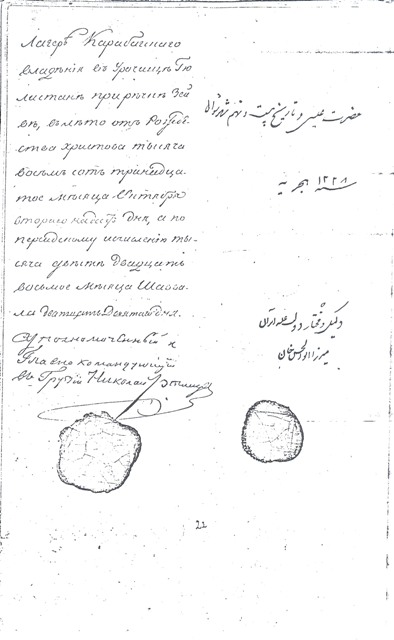 Лагерѣ Карабагскаго
владѣнія въ урочищѣ Гю
листанѣ при рѣчкѣ Зей
вѣ, въ лѣто отъ Рождѣс
ства христова тысяча
восемь сотъ тринадца
тое мѣсяца Октября
второго надесять дня, а по
персидскому исчисленію ты-
сяча двѣсти двадцать
восьмое мѣсяца Шавва-
ла двадцать Девятаго дня.
Уполномоченный и
Главнокомандующій
въ Грузіи Николай Ртищев
حضرت عیسی و تاریخ بیست و نهم شهر شوال
سنه ۱۲۲۸ هجریه
وکیل و مختار دولت علیه ایران
میرزا ابوالحسن خان
22